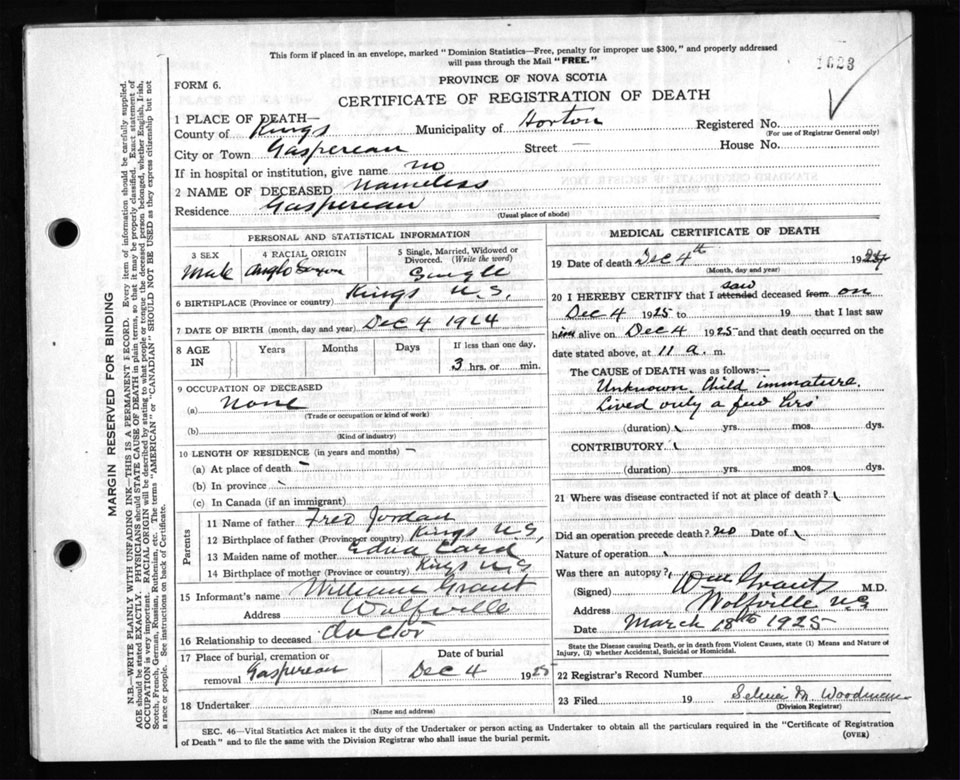 This form if placed in an envelope, marked "Dominion Statistics—Free, penalty for improper use $300," and properly addressed
will pass through the Mail "FREE."
1623
FORM 6.
PROVINCE OF NOVA SCOTIA
CERTIFICATE OF REGISTRATION OF DEATH
1 PLACE OF DEATH—
County of Kings Municipality of Horton Registered No.
(For use of Registrar General only)
City or Town Gaspereau Street — House No.
If in hospital or institution, give name no
2 NAME OF DECEASED Nameless
Residence Gaspereau
(Usual place of abode)
PERSONAL AND STATISTICAL INFORMATION
3 SEX 4 RACIAL ORIGIN 5 Single, Married, Widowed or
Divorced. (Write the word)
Male Anglo Saxon Single
6 BIRTHPLACE (Province or country) Kings N.S.
7 DATE OF BIRTH (month, day and year) Dec 4 1924
8 AGE IN Years Months Days If less than one day,
3 hrs. or min.
9 OCCUPATION OF DECEASED
(a) None
(Trade or occupation or kind of work)
(b)
(Kind of industry)
10 LENGTH OF RESIDENCE (in years and months) —
(a) At place of death
(b) In province
(c) In Canada (if an immigrant)
Parents
11 Name of father Fred Jordan
12 Birthplace of father (Province or country) Kings N.S.
13 Maiden name of mother Edna Card
14 Birthplace of mother (Province or country) Kings N.S
15 Informant's name William Grant
Address Wolfville
16 Relationship to deceased doctor
17 Place of burial, cremation or Date of burial
removal Gaspereau Dec 4 1925
18 Undertaker
(Name and address)
MEDICAL CERTIFICATE OF DEATH
19 Date of death Dec 4th 192
(Month, day and year)
20 I HEREBY CERTIFY that I attended saw deceased from on
Dec 4 1925 to 19 that I last saw
him alive on Dec 4 1925 and that death occurred on
date stated above, at 11 a. m.
The CAUSE of DEATH was as follows:—
Unknown. Child immature.
Lived only a few hrs
(duration) yrs. mos. dys.
CONTRIBUTORY
(duration) yrs. mos. dys.
21 Where was disease contracted if not at place of death?
Did an operation precede death? no Date of
Nature of operation
Was there an autopsy?
(Signed) Wm Grant M.D.
Address Wolfville N.S
Date March 18th 1925
State the Disease causing Death, or in death from Violent Causes, state (1) Means and Nature of
Injury, (2) whether Accidental, Suicidal or Homicidal.
22 Registrar's Record Number
23 Filed 19 M. Woodman
(Division Registrar)
SEC. 46—Vital Statistics Act makes it the duty of the Undertaker or person acting as Undertaker to obtain all the particulars required in the "Certificate of Registration
of Death" and to file the same with the Division Registrar who shall issue the burial permit.
(OVER)
MARGIN RESERVED FOR BINDING
N.B.—WRITE PLAINLY WITH UNFADING INK—THIS IS A PERMANENT RECORD. Every item of information should be carefully supplied.
AGE should be stated EXACTLY. PHYSICIANS should STATE CAUSE OF DEATH in plain terms, so that it may be properly classified. Exact statement of
OCCUPATION is very important. RACIAL ORIGIN will be described by stating to what people or tongue the deceased person belonged, whether English, Irish,
Scotch, French, German, Russian, Ruthenian, etc. The terms "AMERICAN" or "CANADIAN" SHOULD NOT BE USED as they express citizenship but not
a race or people. See instructions on back of Certificate.